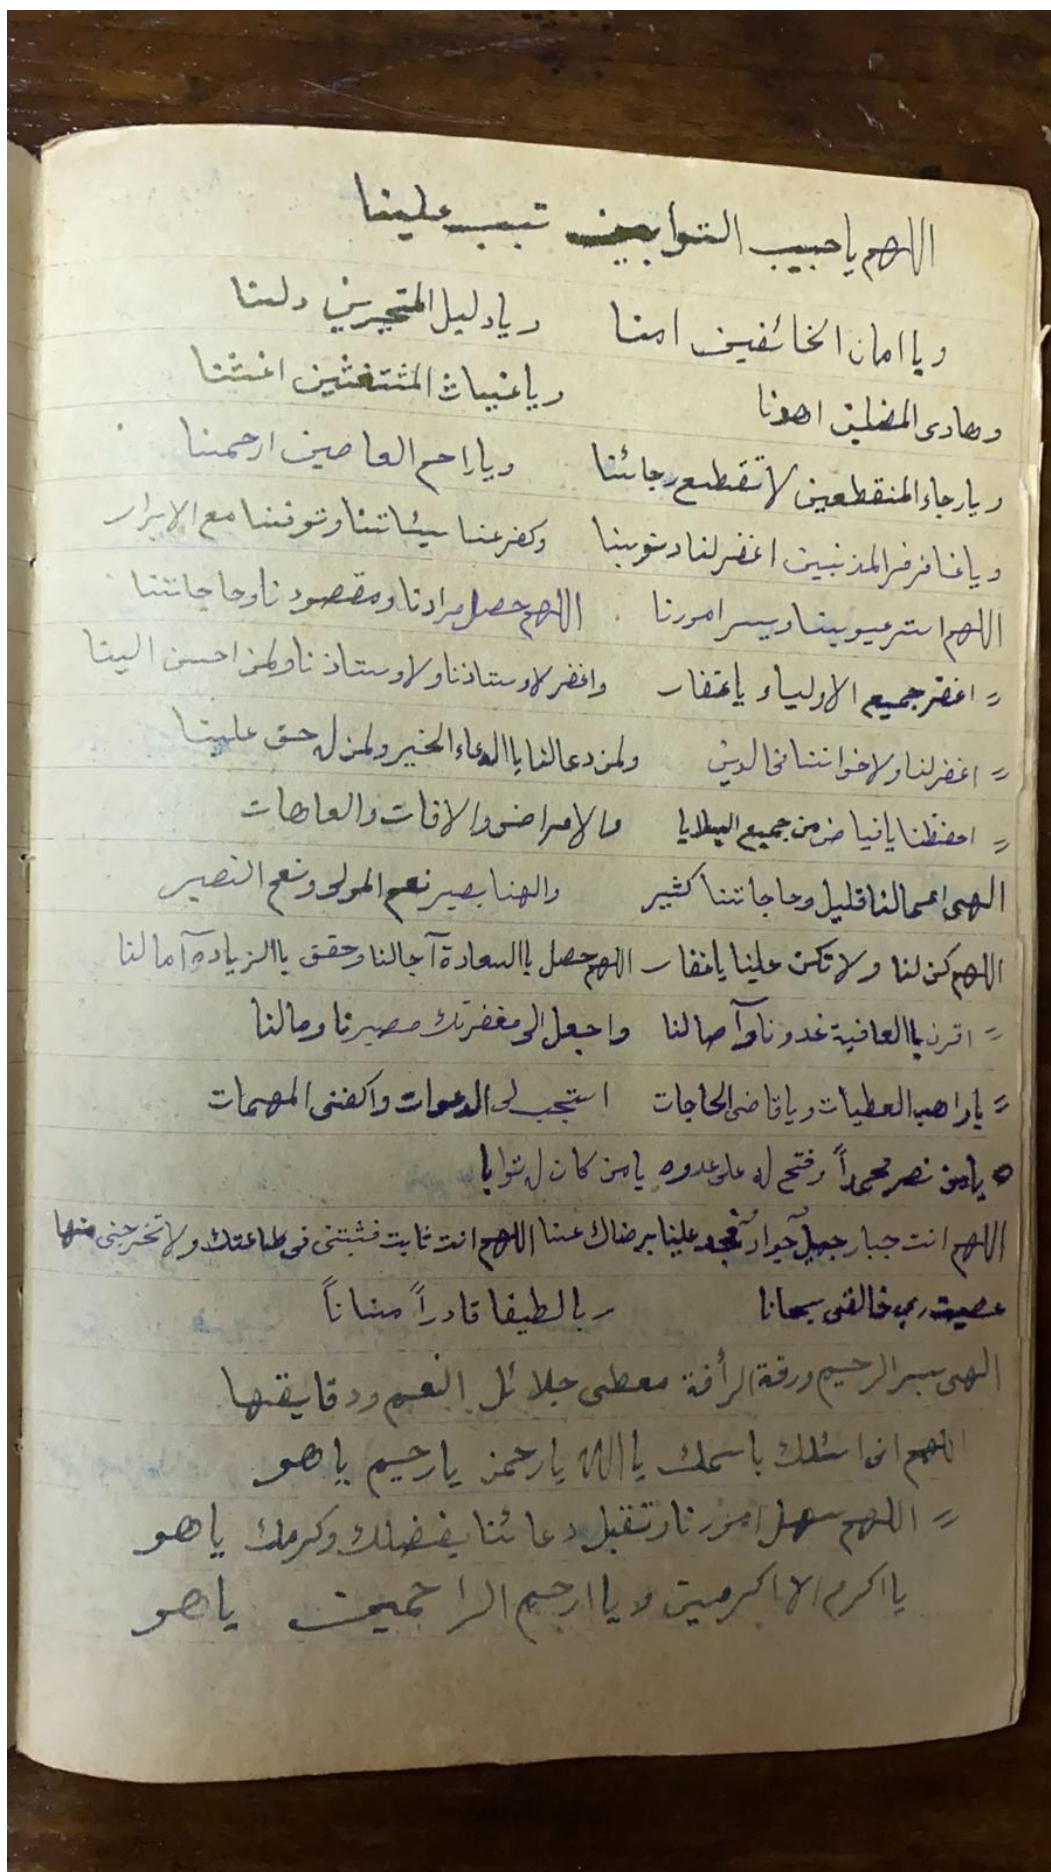 اللهم يا حبيب التوابين تبب علينا
ويا امان الخائفين امنا ويا دليل المتحيرين دلنا
وهادى المضلين اهدنا ويا غياث المثتغثين اغثنا
ويا رجاء المنقطعين لا تقطع رجائنا ويا راحم العاصين ارحمنا
ويا غافر المذنبين اغفر لنا ذنوبنا وكفر عنا سيئاتنا وتوفنا مع الابرار
اللهم استر عيوبنا ويسر امورنا اللهم حصل مرادنا ومقصودنا وحاجاتنا
〃 اغفر جميع الاولياء يا غفار واغفر لاوستاذنا ولاوستاذنا ولمن احسن الينا
〃 اغفر لنا ولاخواننا فى الدين ولمن دعا لنا باالدعاء الخير ولمن له حق علينا
〃 احفظنا يا فياض من جميع البلايا والامراض والافات والعاهات
الهى اعمالنا قليل وحاجاتنا كثير والهنا بصير نعم المولى ونعم النصير
اللهم كن لنا ولا تكن علينا يا غفار اللهم حصل باالسعادة آجالنا وحقق باالزيادة آمالنا
〃 اقرن باالعافية غدونا وآصالنا واجعل الى مغفرتك مصيرنا ومالنا
〃 يا واهب العطيات ويا قاضى الحاجات استجب لى الدعوات واكفنى المهمات
يامن نصر محمداً وفتح له على عدوه يامن كان له توابا
اللهم انت جبار جميل جواد علينا برضاك عنا اللهم انت ثابت فثبتنى فى طاعتك ولا تخرجنى منها
عصيت ربى خالقى سبحانا ربا لطيفا قادراً مناناً
الهى الرحيم ورقة الرأفة معطى جلائل النعم ودقايقها
اللهم انى اسئلك باسمك يا الله يا رحمن يا رحيم يا هو
〃 اللهم سهل امورنا وتقبل دعائنا بفضلك وكرمك يا هو
يا اكرم الاكرمين ويا ارحيم الراحمين يا هو